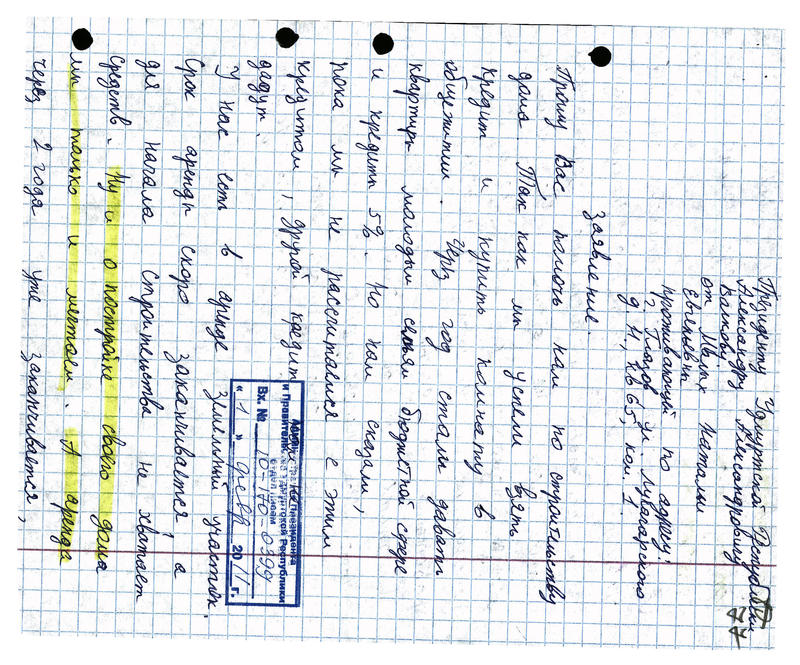 Президенту Удмуртской Республики
Александру Александровичу
Волкову
от Малих Натальи
Евгеньевны
проживающей по адресу:
г. Глазов ул. Луначарского
д. 11, кв 65, ком. 1.
Заявление.
Прошу Вас помочь нам по строительству
дома. Так как мы успели взять
кредит и купить комнату в
общежитии. Через год стали давать
квартиры молодым семьям бюджетной сфере
и кредиты 5%. Но нам сказали,
пока мы не рассчитаемся с этим
кредитом, другой кредит не
дадут.
У нас есть в аренде земельный участок.
Срок аренды скоро заканчивается, а
для начала строительства не хватает
средств. Ну и о постройке своего дома
мы только и мечтаем. А аренда
через 2 года уже заканчивается,
Президента
и Правительства Удмуртской Республики
Вх. № 10-170-0399
« 1 » февр 2011 г.